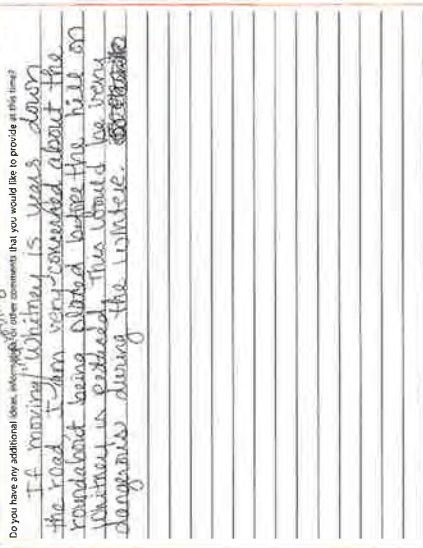 Do you have any additional ideas, information or other comments that you would like to provide at this time?
If moving Whitney is years down
the road I am very concerned about the
roundabout being placed before the hill on
Whitney is reduced. This would be very
dangerous during the winter.